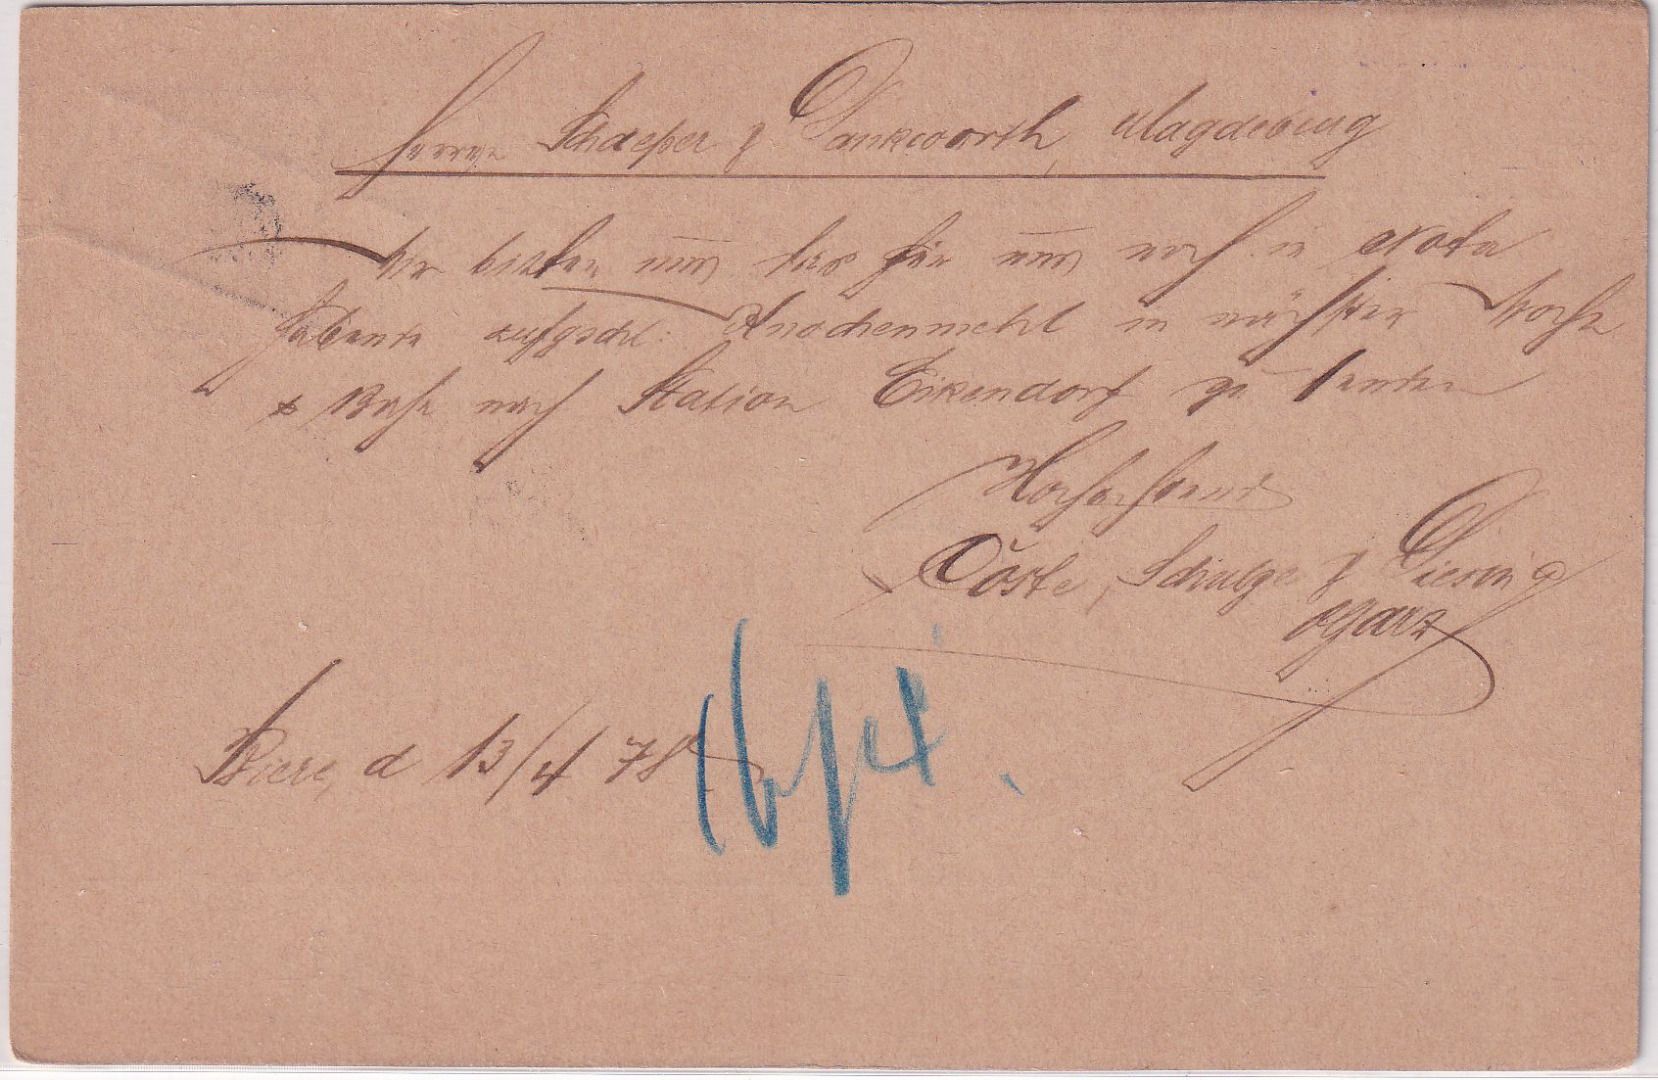 Herren Schaeper & Dankworth, Magdeburg
Wir bitten uns das für uns noch in Nota
habende aufgeschl: Knochenmehl in nächster Woche
p Bahn nach Station Eikendorf zu senden
Hochachtend
Coste, Schulze & Diesing
Biere, d 13/4 78
16/4.